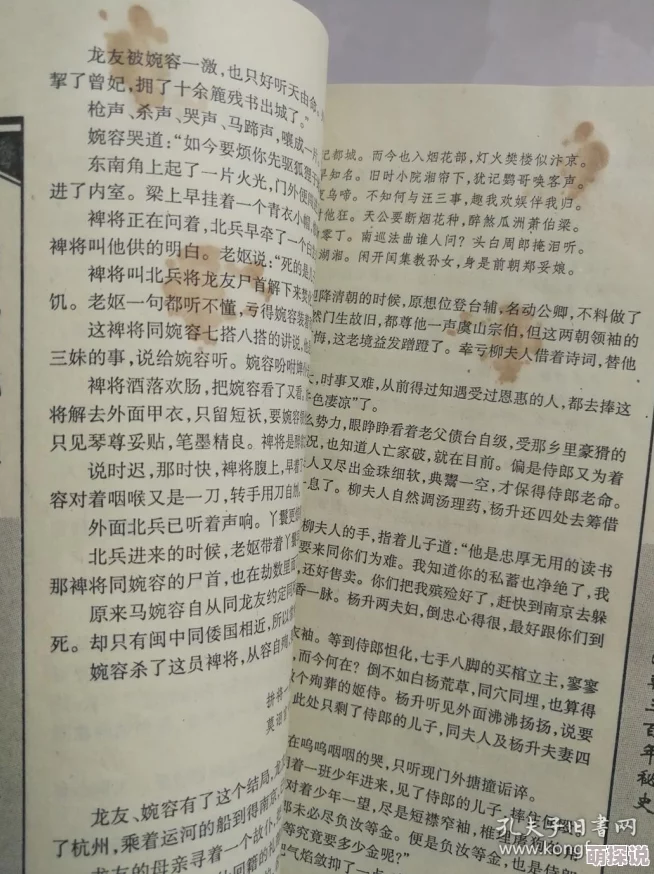 龙友被婉容一激，也只好听天由命。
挈了曾妃，拥了十余簏残书出城了。”
枪声、杀声、哭声、马蹄声，嚷成一片
婉容哭道：“如今要烦你先驱狐狸于
东南角上起了一片火光，门外便
进了内室。梁上早挂着一个青衣小帽
裨将正在问着，北兵早牵了一个白
裨将叫他供的明白。老妪说：“死的是
裨将叫北兵将龙友尸首解下来
饥。老妪一句都听不懂，亏得婉容装着
这裨将同婉容七搭八搭的讲说，
三妹的事，说给婉容听。婉容吩咐
裨将洒落欢肠，把婉容看了又看，
将解去外面甲衣，只留短袄，要婉容
只见琴尊妥贴，笔墨精良。裨将是
说时迟，那时快，裨将腹上，早着了
容对着咽喉又是一刀，转手用刀自
外面北兵已听着声响。丫鬟更
北兵进来的时候，老妪带着丫鬟
那裨将同婉容的尸首，也在劫数里
原来马婉容自从同龙友约定同
死。却只有闽中同倭国相近，所以
婉容杀了这员裨将，从容自殉，
拚将一
莫迎
龙友、婉容有了这个结局，龙
了杭州，乘着运河的船到得南京，
龙友的母亲寻着一个故仆，
记都城。而今也入烟花部，灯火樊楼似汴京。
早知名。旧时小院湘帘下，犹记鹦哥唤客声。
夏乌啼。不知何与汪三事，趣我欢娱伴我归。
时他狂。天公要断烟花种，醉煞瓜洲萧伯梁。
零丁。南巡法曲谁人问？头白周郎掩泪听。
湖湘。闲开闺集教孙女，身是前朝郑妥娘。
但降清朝的时候，原想位登台辅，名动公卿，不料做了
然门生故旧，都尊他一声虞山宗伯，但这两朝领袖的
悔，这老境益发蹭蹬了。幸亏柳夫人借着诗词，替他
，时事又难，从前得过知遇受过恩惠的人，都去捧这
色凄凉”了。
么势力，眼睁睁看着老父债台自级，受那乡里豪猾的
况，也知道人亡家破，就在目前。偏是侍郎又为着
人又尽出金珠细软，典鬻一空，才保得侍郎老命。
息了。柳夫人自然调汤理药，杨升还四处去筹借
柳夫人的手，指着儿子道：“他是忠厚无用的读书
要来同你们为难。我知道你的私蓄也净绝了，我
还好售卖。你们把我殡殓好了，赶快到南京去躲
香一脉。杨升两夫妇，倒忠心得很，最好跟你们到
衣袖。等到侍郎怛化，七手八脚的买棺立主，寥寥
，而今何在？倒不如白杨荒草，同穴同埋，也算得
个殉葬的姬侍。杨升听见外面沸沸扬扬，说要
此处只剩了侍郎的儿子，同夫人及杨升夫妻四
在呜呜咽咽的哭，只听现门外搪撞诟谇。
着一班少年进来，见了侍郎的儿子，
对着少年一望，尽是短襟窄袖，椎
郎未必尽负汝等金。便是负汝等金，也是侍
等究竟要多少金呢？”
气焰敛抑了一点
三百年秘史
孔夫子旧书网
萌探说